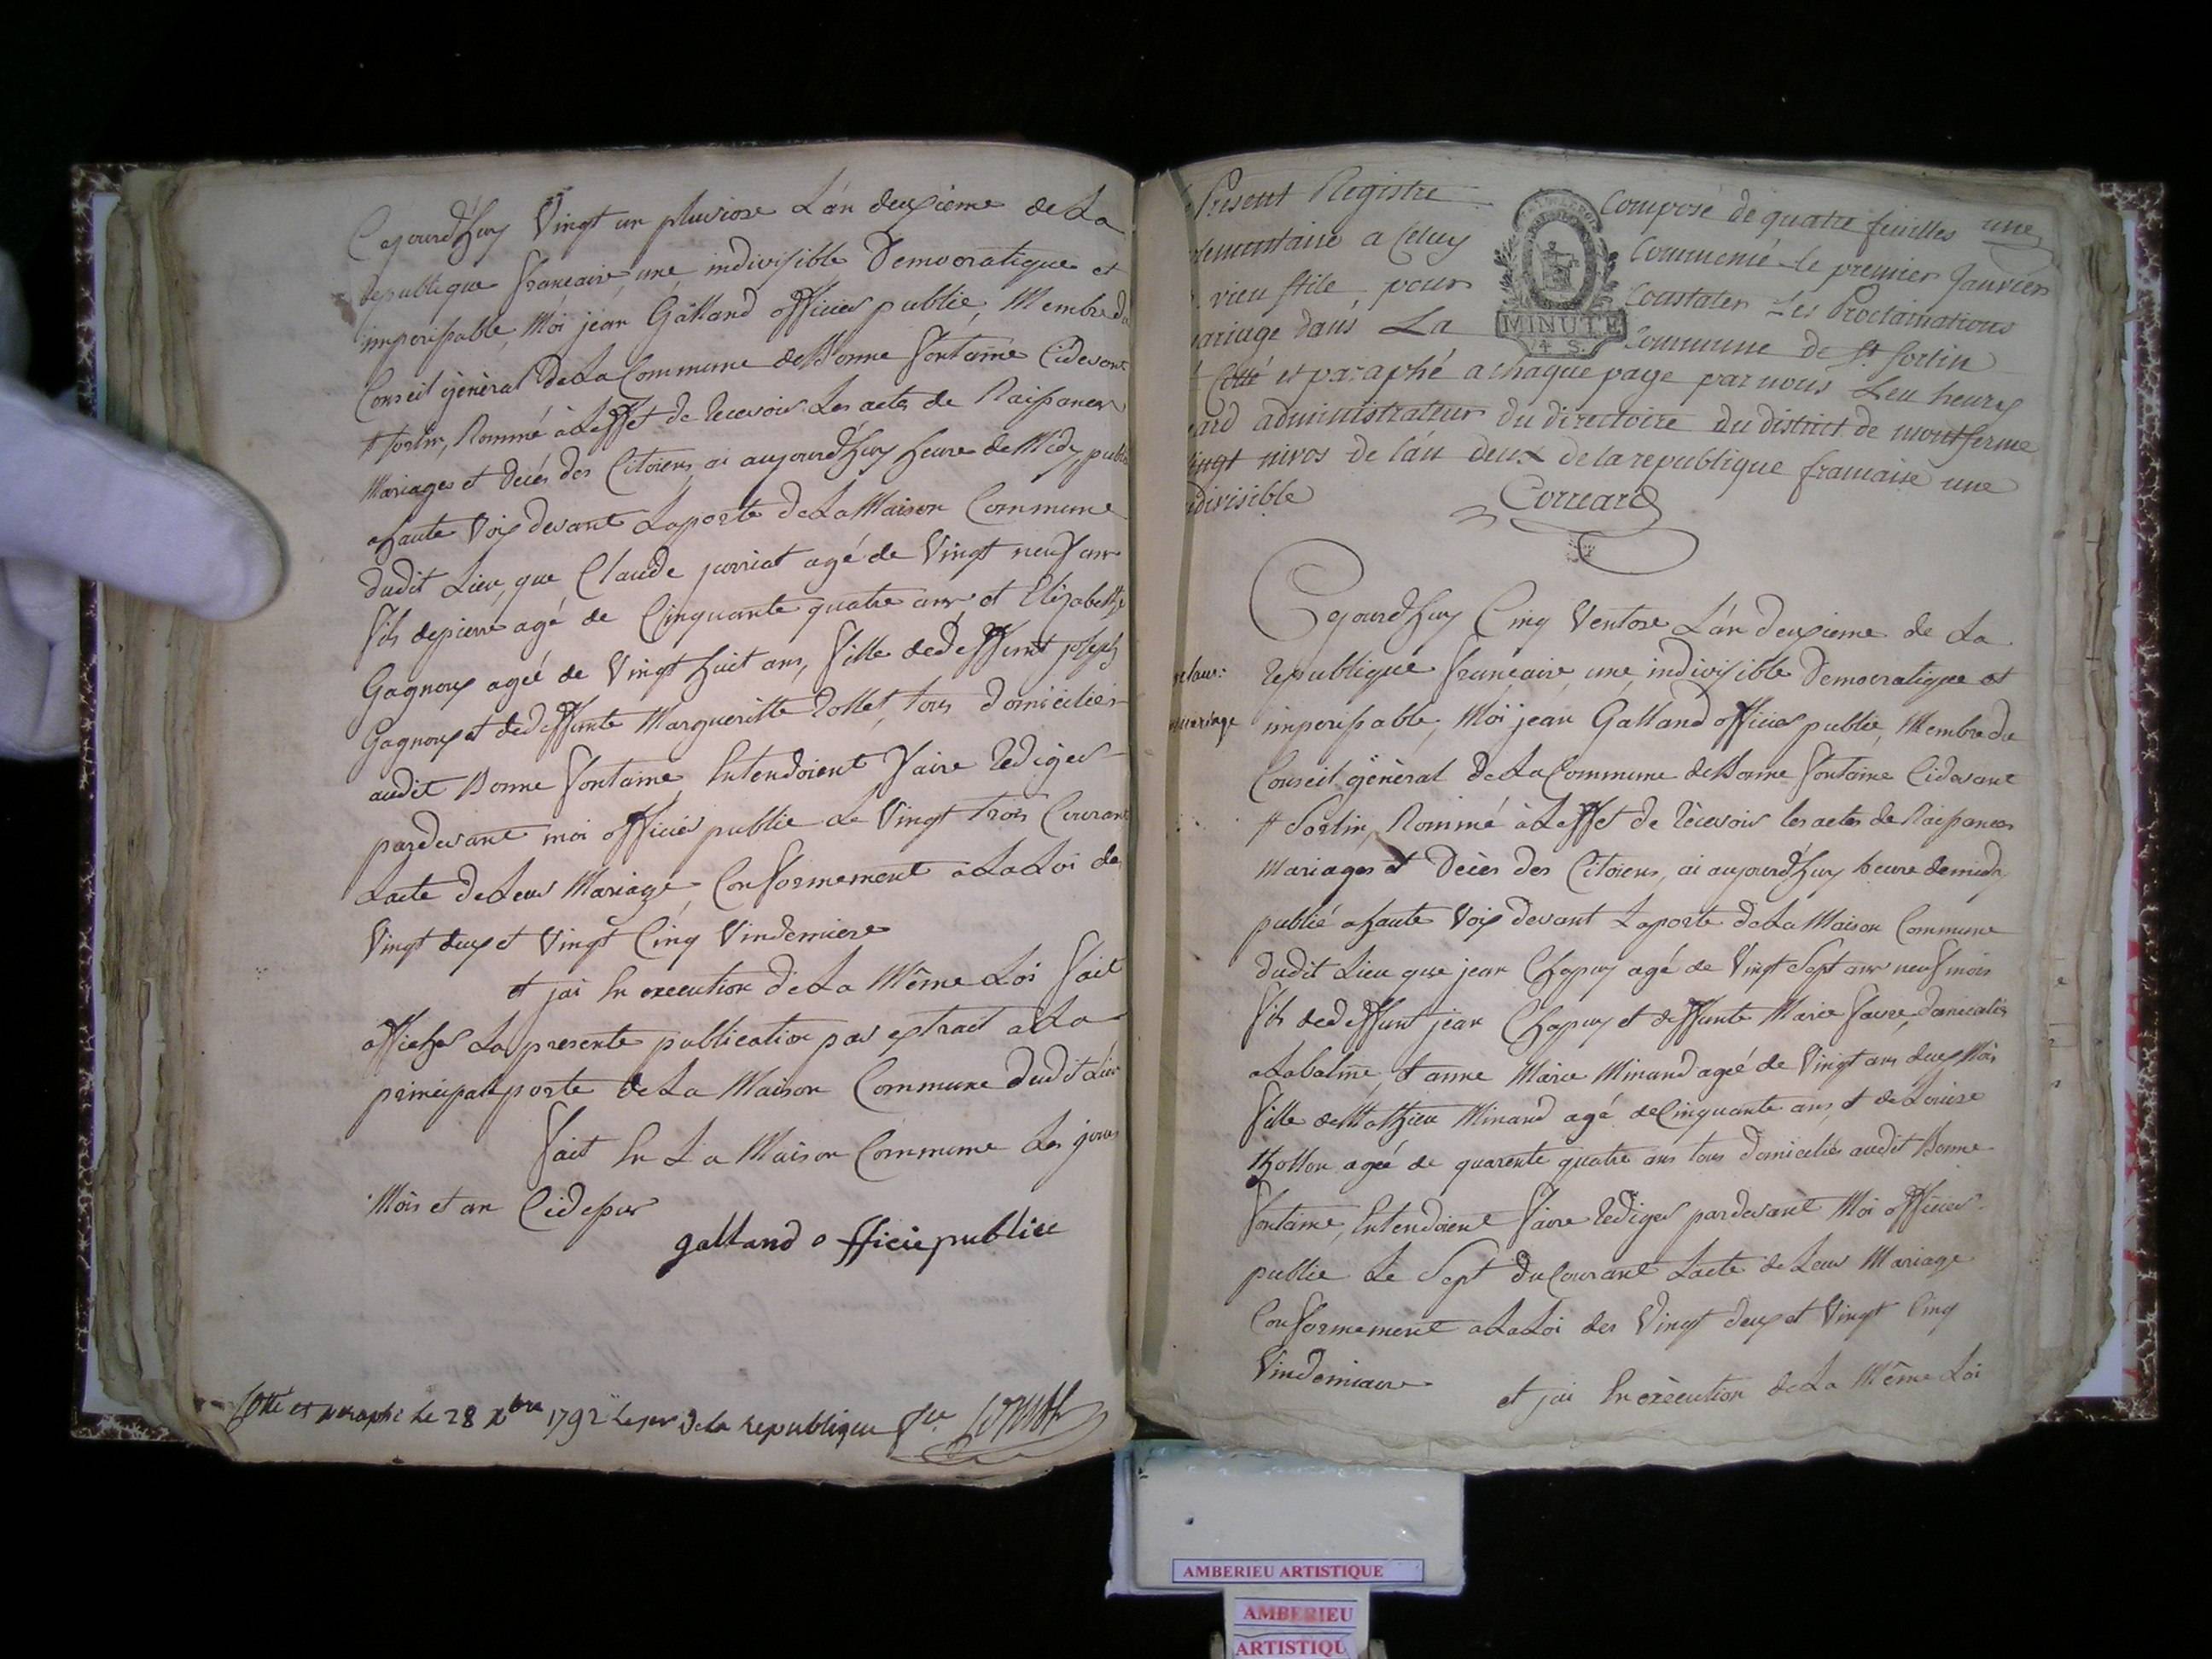 Cejourd'huy Vingt un pluviose L'an deuxieme de La
Republique francaise, une indivisible Democratique et
imperissable, Moi jean Galland officier public, Membre du
Conseil général de La Commune de Bonne fontaine Cidevant
St Sorlin, Nommé à L'effet de recevoir Les actes de Naissances
Mariages et Décès des Citoiens, ai aujourd'huy heure de Midy publié
a haute Voix devant La porte de La Maison Commune
dudit Lieu, que Claude jorriat agé de Vingt neuf ans
fils de pierre agé de Cinquante quatre ans, et Elizabeth
Gagnoux ageé de Vingt huit ans, fille de deffunt joseph
Gagnoux et de deffunte Margueritte Collet, tous domiciliés
audit Bonne fontaine, Entendoient faire rediger
pardevant moi officier public Le Vingt trois Courant
L'acte de Leur Mariage, Conformement a La Loi de
Vingt deux et Vingt Cinq Vindemiere
et jai En execution de La Même Loi fait
afficher La presente publication par extrait a La
principale porte de La Maison Commune dudit Lieu
fait En La Maison Commune Les jours
Mois et an Cidessus
galland officié publicc
Cotté et paraphé le 28 xbre 1792 l'an 1er de la Republique
Present Registre Composé de quatre feuilles une
a Celuy Commencé le premier Janvier
vieu stile, pour Constater Les Proclamations
ariage dans La Commune de St Sorlin
MINUTE
4 S.
Cotté et paraphé a chaque page par nous Leu heureg
ard administrateur du directoire du district de montferme
ingt nivos de l'an deux de la republique francaise une
divisible
Correard
Cejourd'huy Cinq Ventose L'an deuxieme de La
Republique francaise, une, indivisible Democratique et
mariage
imperissable, Moi jean Galland officier public, Membre du
Conseil général de La Commune de Bonne fontaine Cidevant
St Sorlin, Nommé à L'effet de recevoir les actes de Naissances
Mariages et Décès des Citoiens, ai aujourd'huy heure de midy
publié a haute Voix devant La porte de La Maison Commune
dudit Lieu que jean Chapuy agé de Vingt Sept ans neuf mois
fils de deffunt jean Chapuy et deffunte Marie favre, domicilié
a La balme, et anne Marie Minand ageé de Vingt ans deux Mois
fille de Mathieu Minand agé de Cinquante ans, et de Louise
Thollon ageé de quarente quatre ans tous domiciliés audit Bonne
fontaine, Entendoient faire rediger pardevant Moi officier
public Le Sept du Courant L'acte de Leur Mariage
Conformement a La Loi des Vingt deux et Vingt Cinq
Vindemiaire
et jai En exécution de La Même Loi
AMBERIEU ARTISTIQUE
AMBERIEU
ARTISTIQU